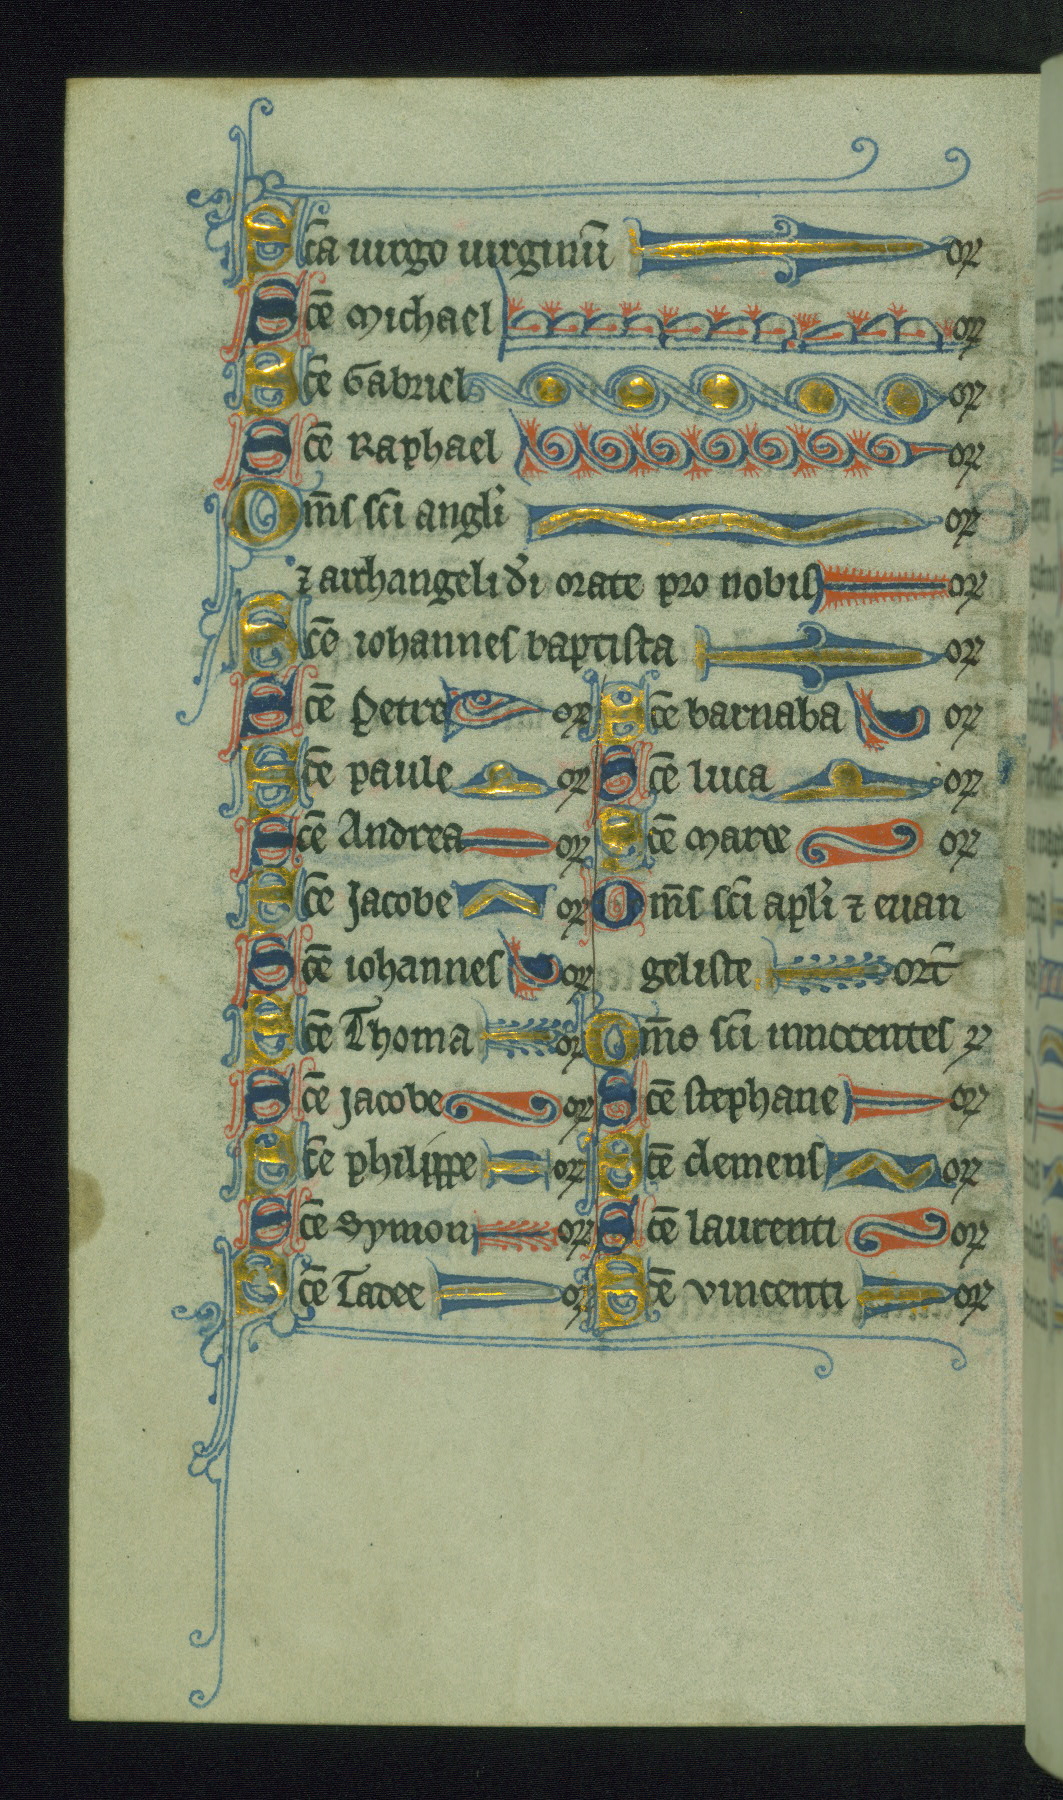 Sc̄a uirgo uirginū or
Sc̄e Michael or
Sc̄e Gabriel or
Sc̄e Raphael or
Om̄s sc̄i angl̄i or
⁊ archangeli d̄i orate pro nobis or
Sc̄e iohannes baptista or
Sc̄e Petre or
Sc̄e paule or
Sc̄e Andrea or
Sc̄e Jacobe or
Sc̄e iohannes or
Sc̄e Thoma or
Sc̄e jacobe or
Sc̄e philippe or
Sc̄e Symon or
Sc̄e Tadee or
Sc̄e barnaba or
Sc̄e luca or
Sc̄e Marce or
Om̄s sc̄i apl̄i ⁊ euan
geliste orc̄
Om̄s sc̄i innocentes
Sc̄e stephane or
Sc̄e clemens or
Sc̄e laurenti or
Sc̄e vincenti or